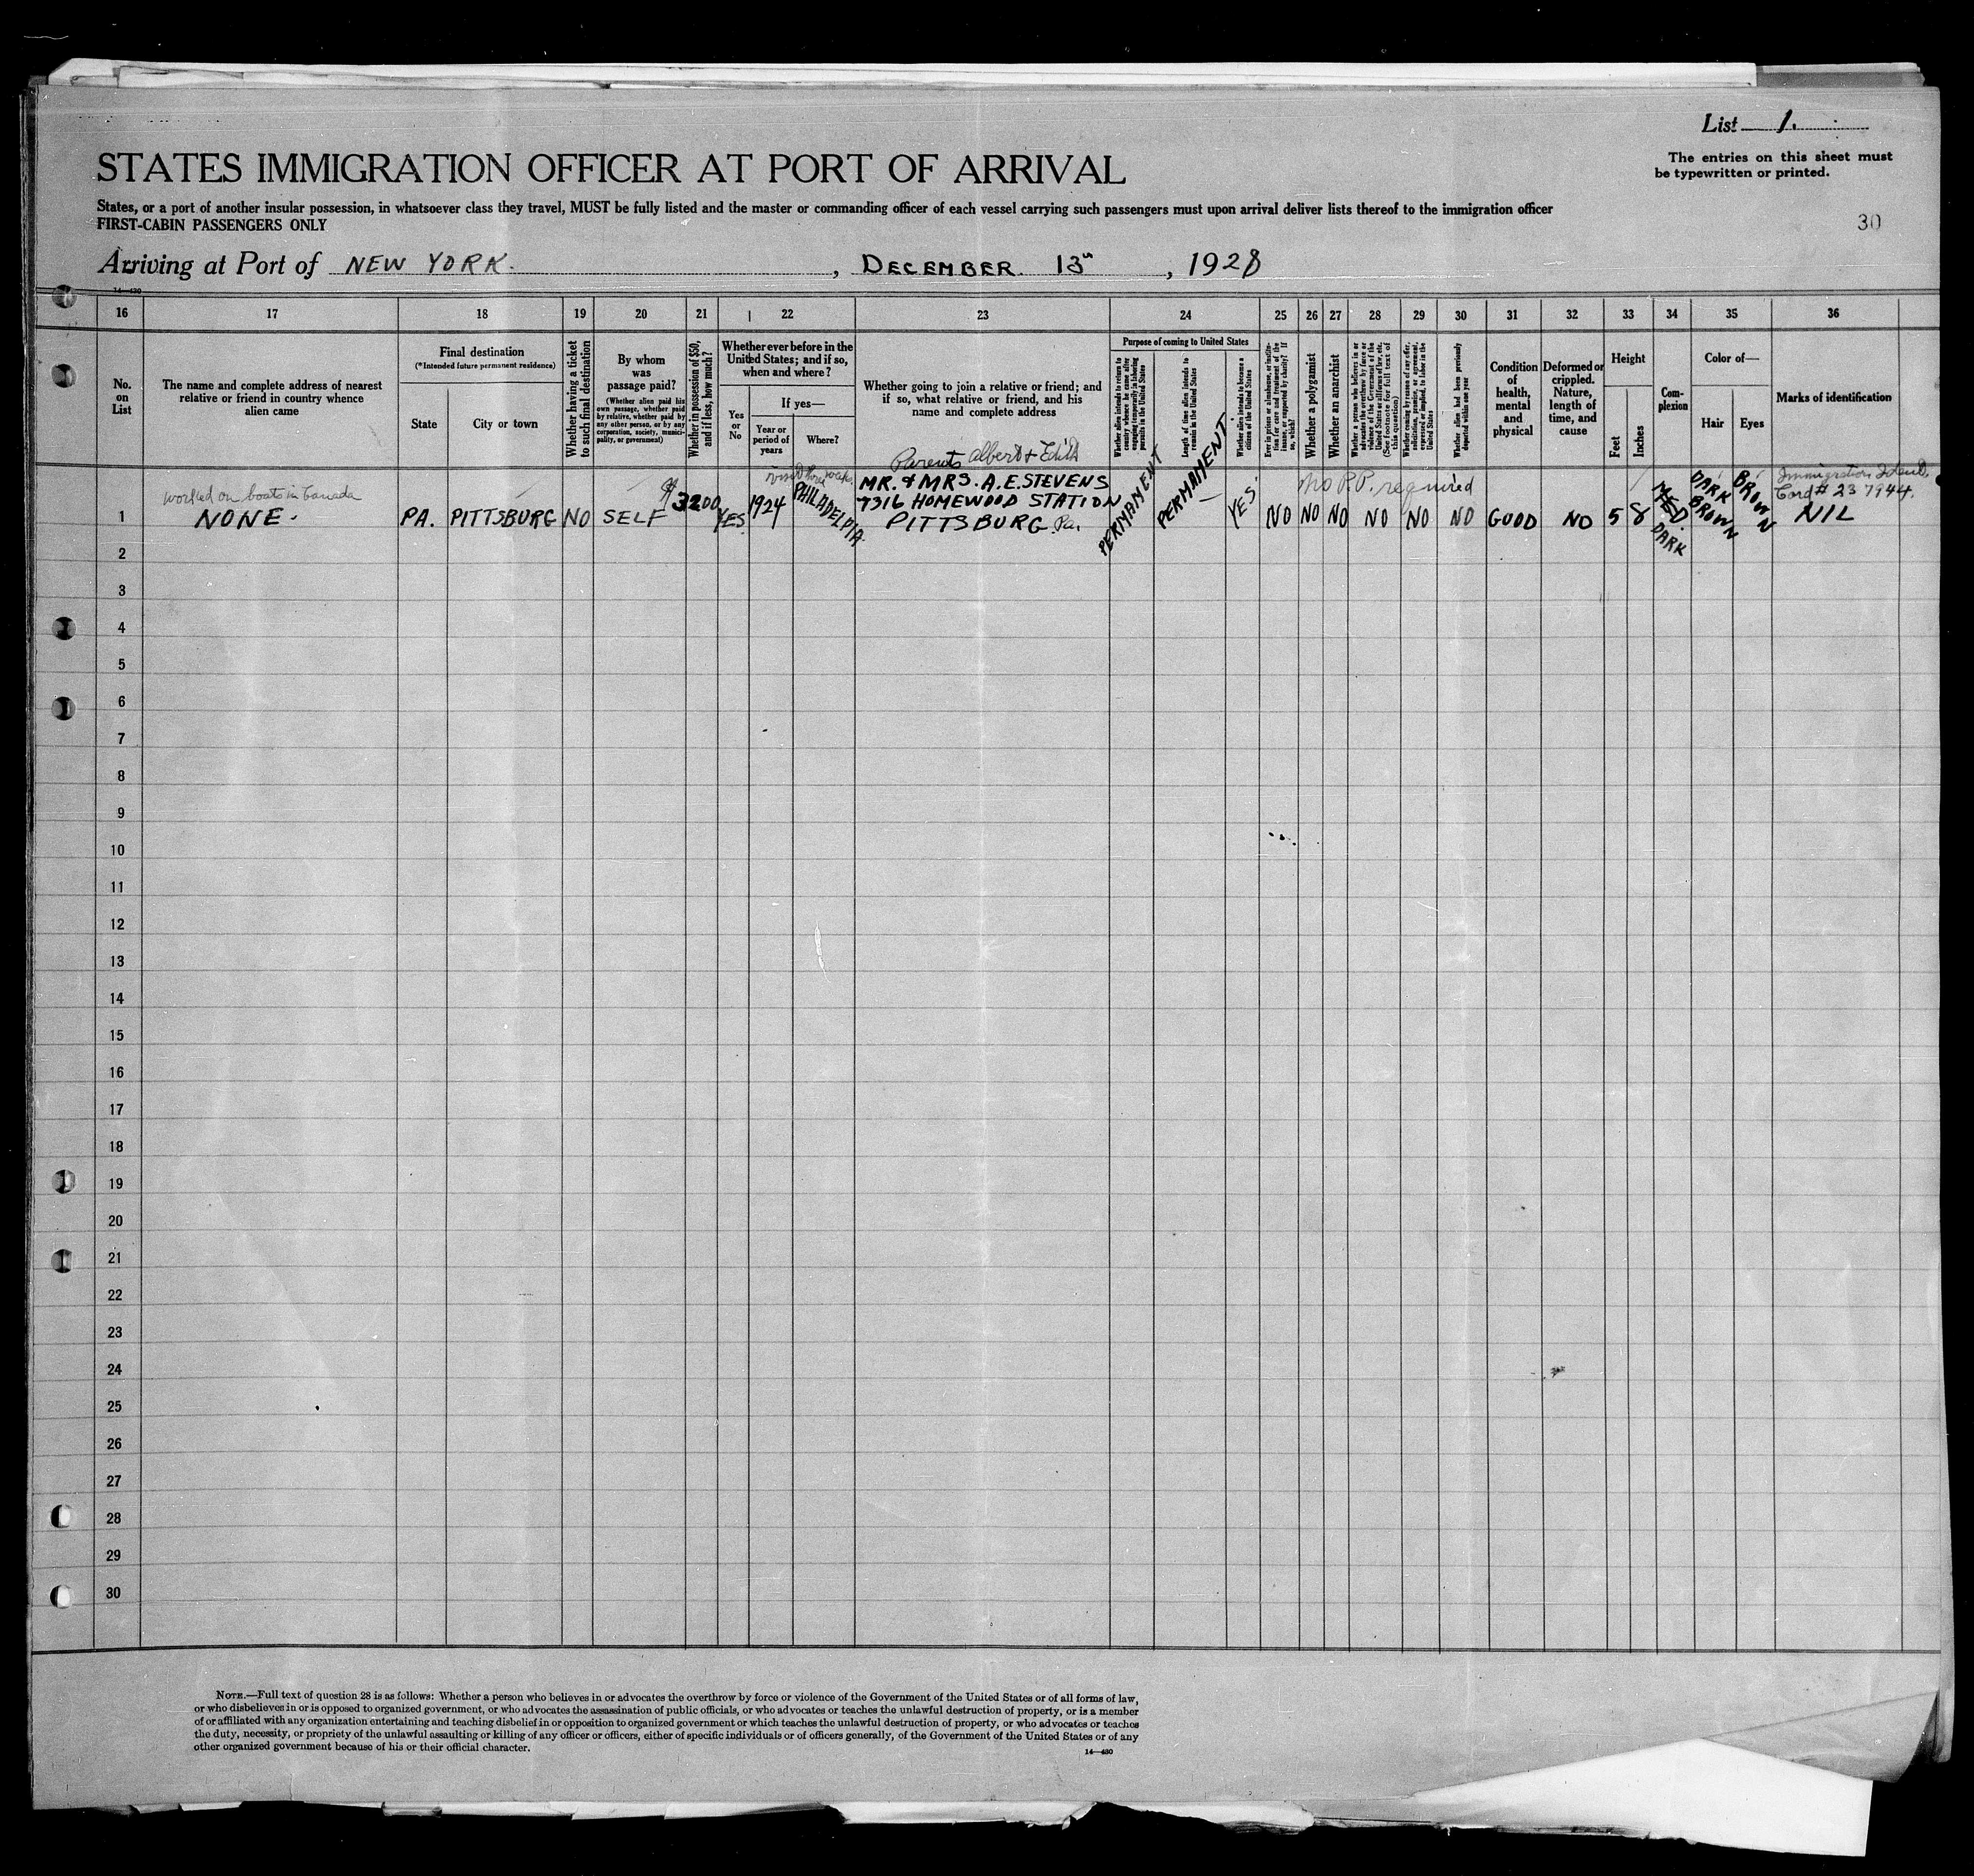 List 1.
STATES IMMIGRATION OFFICER AT PORT OF ARRIVAL
The entries on this sheet must
be typewritten or printed.
States, or a port of another insular possession, in whatsoever class they travel, MUST be fully listed and the master or commanding officer of each vessel carrying such passengers must upon arrival deliver lists thereof to the immigration officer
FIRST-CABIN PASSENGERS ONLY
30
Arriving at Port of NEW YORK. , DECEMBER 13th , 1928
14—430
16 17 18 19 20 21 22 23 24 25 26 27 28 29 30 31 32 33 34 35 36
No. on List
The name and complete address of nearest
relative or friend in country whence
alien came
Final destination
(*Intended future permanent residence)
State
City or town
Whether having a ticket
to such final destination
By whom
was
passage paid?
(Whether alien paid his
own passage, whether paid
by relative, whether paid by
any other person, or by any
corporation, society, munici-
pality, or government)
Whether in possession of $50,
and if less, how much?
Whether ever before in the
United States; and if so,
when and where?
Yes
or
No
If yes—
Year or
period of
years
Where?
Whether going to join a relative or friend; and
if so, what relative or friend, and his
name and complete address
Purpose of coming to United States
Whether alien intends to return to
country whence he came after
engaging temporarily in laboring
pursuits in the United States
Length of time alien intends to
remain in the United States
Whether alien intends to become a
citizen of the United States
Ever in prison or almshouse, or institu-
tion for care and treatment of the
insane, or supported by charity? If
so, which?
Whether a polygamist
Whether an anarchist
Whether a person who believes in or
advocates the overthrow by force or
violence of the Government of the
United States or all forms of law, etc.
(See footnote for full text of
this question)
Whether coming by reason of any offer,
solicitation, promise, or agreement,
expressed or implied, to labor in the
United States
Whether alien had been previously
deported within one year
Condition
of
health,
mental
and
physical
Deformed or
crippled.
Nature,
length of
time, and
cause
Height
Feet
Inches
Com-
plexion
Color of—
Hair
Eyes
Marks of identification
Parents Albert + Edith
worked on boats in Canada
No P.P. required
Immigration Ident.
Card # 237944.
1 NONE. PA. PITTSBURG NO SELF $3200 YES 1924 PHILADELPIA.
MR. & MRS. A.E. STEVENS
7316 HOMEWOOD STATION
PITTSBURG. Pa.
PERMAMENT PERMAMENT YES NO NO NO NO NO NO GOOD NO 5 8 MED. DARK DARK BROWN BROWN NIL
2
3
4
5
6
7
8
9
10
11
12
13
14
15
16
17
18
19
20
21
22
23
24
25
26
27
28
29
30
NOTE.—Full text of question 28 is as follows: Whether a person who believes in or advocates the overthrow by force or violence of the Government of the United States or of all forms of law,
or who disbelieves in or is opposed to organized government, or who advocates the assassination of public officials, or who advocates or teaches the unlawful destruction of property, or is a member
of or affiliated with any organization entertaining and teaching disbelief in or opposition to organized government or which teaches the unlawful destruction of property, or who advocates or teaches
the duty, necessity, or propriety of the unlawful assaulting or killing of any officer or officers, either of specific individuals or of officers generally, of the Government of the United States or of any
other organized government because of his or their official character.
14—430